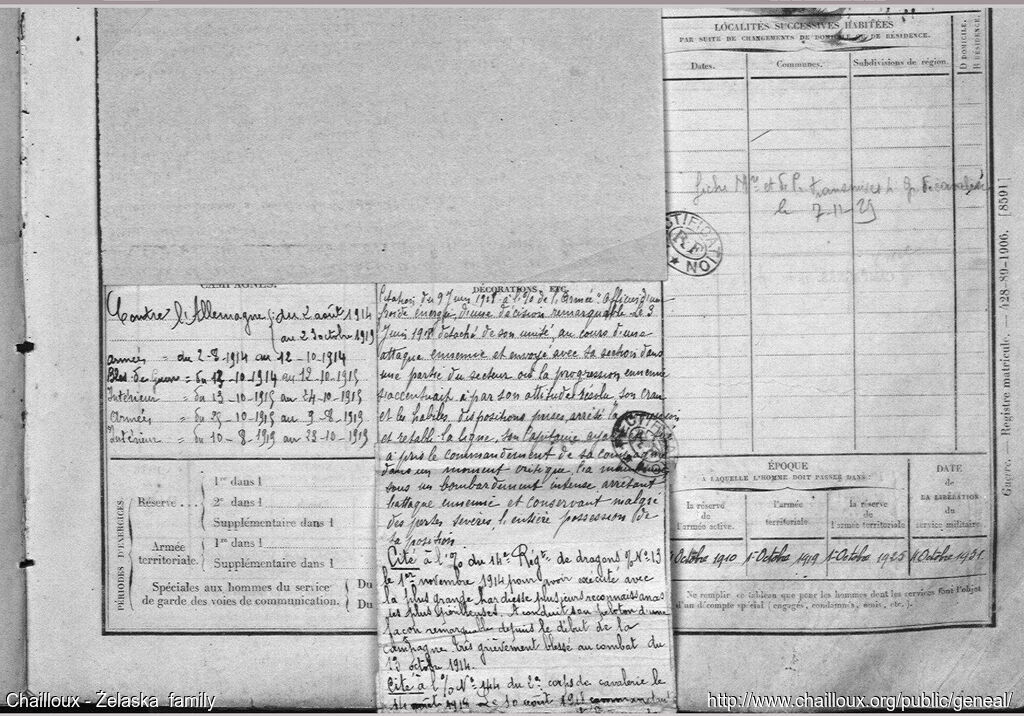 LOCALITÉS SUCCESSIVES HABITÉES
PAR SUITE DE CHANGEMENTS DE DOMICILE OU DE RÉSIDENCE.
D DOMICILE.
R RÉSIDENCE.
Dates.
Communes.
Subdivisions de région.
fiche Mre et de P. transmises
le 7-11-29
RF
CAMPAGNES.
Contre l'Allemagne du 2 août 1914
au 23 octobre 1919
Armées = du 2-8-1914 au 12-10-1914
Bles de Guerre = du 13-10-1914 au 12-10-1915
Intérieur = du 13-10-1915 au 24-10-1915
Armées = du 25-10-1915 au 9-8-1919
Intérieur = du 10-8-1919 au 23-10-1919
PÉRIODES D'EXERCICES.
Réserve . . .
1re dans l
2e dans l
Supplémentaire dans l
Armée
territoriale.
1re dans l
Supplémentaire dans l
Spéciales aux hommes du service
de garde des voies de communication.
Du
Du
DÉCORATIONS, ETC.
Citation du 9 Juin 1918 à l'/O de l'Armée "Officier d'une
froide énergie, d'une décision remarquable. Le 3
Juin 1918 détaché de son unité, au cours d'une
attaque ennemie et envoyé avec sa section dans
une partie du secteur où la progression ennemie
s'accentuait, a par son attitude résolue, son cran
et les habiles dispositions prises, arrêté la
et rétabli la ligne, son Capitaine ayant été
a pris le commandement de sa compagnie
dans un moment critique, l'a
sous un bombardement intense arrêtant
l'attaque ennemie et conservant malgré
des pertes sévères, l'entière possession de
sa position
Cité à l'/O du 14e Régt de dragons No 13
le 1er novembre 1914 pour avoir exécuté avec
la plus grande hardiesse plusieurs reconnaissances
des plus périlleuses. A conduit son peloton d'une
façon remarquable depuis le début de la
campagne, très grièvement blessé au combat du
13 octobre 1914.
Cité à l'/O No 144 du 2e corps de cavalerie le
1918 Le 10 août 1918 commandant
ÉPOQUE
À LAQUELLE L'HOMME DOIT PASSER DANS :
la réserve
de
l'armée active.
l'armée
territoriale.
la réserve
de
l'armée territoriale
DATE
de
LA LIBÉRATION
du
service militaire.
Octobre 1910
1er Octobre 1919
1er Octobre 1925
Octobre 1931
Ne remplir ce tableau que pour les hommes dont les services font l'objet
d'un décompte spécial (engagés, condamnés, omis, etc.).
Guerre. — Registre matricule. — 428-89-1906. [8591]
Chailloux - Żelaska family
http://www.chailloux.org/public/geneal/